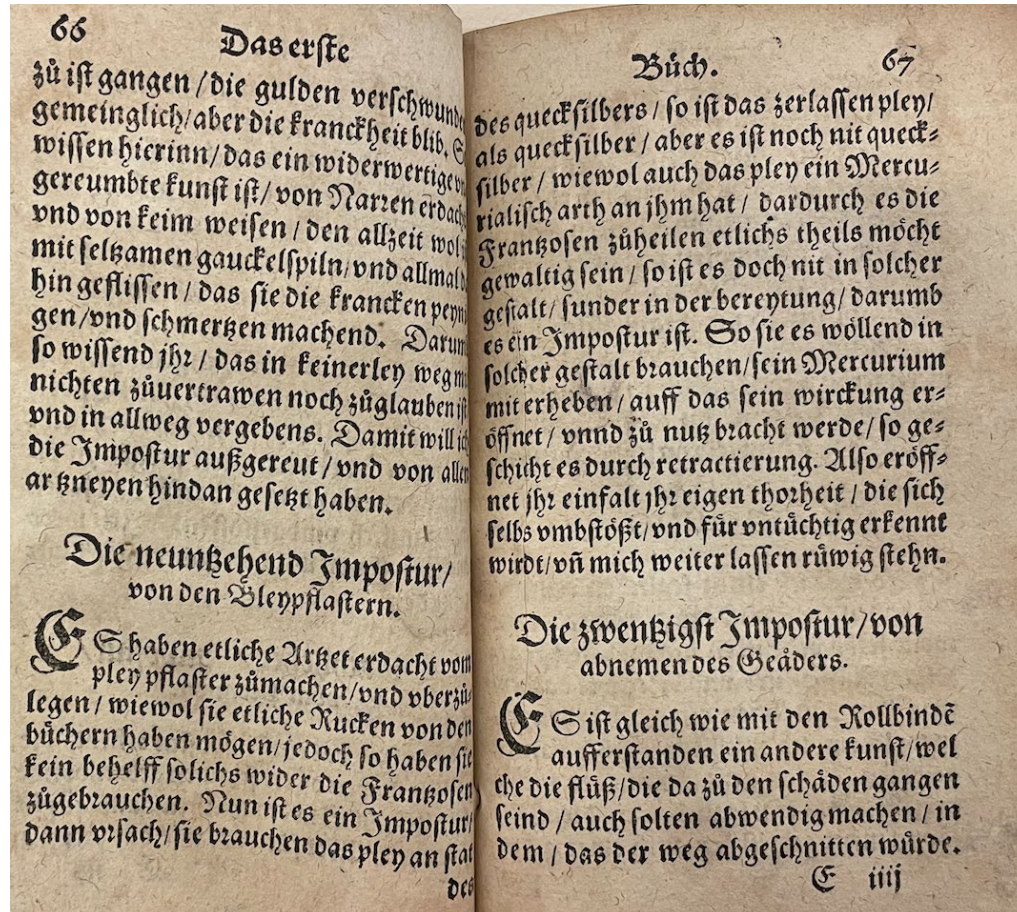 66
Das erste
zů ist gangen / die gulden verschwunden
gemeinglich / aber die kranckheit blib.
wissen hierinn / das ein widerwertige
gereumbte kunst ist / von Narren erdacht
vnd von keim weisen / den allzeit wol
mit seltzamen gauckelspiln / vnd allmal
hin geflissen / das sie die krancken peyni
gen / vnd schmertzen machend. Darumb
so wissend jhr / das in keinerley weg mit
nichten zůuertrawen noch zůglauben ist
vnd in allweg vergebens. Damit will ich
die Impostur außgereut / vnd von allen
artzneyen hindan gesetzt haben.
Die neuntzehend Impostur /
von den Bleypflastern.
ES haben etliche Artzet erdacht vom
pley pflaster zůmachen / vnd vberzů-
legen / wiewol sie etliche Rucken von den
büchern haben mögen / jedoch so haben sie
kein behelff solichs wider die Frantzosen
zůgebrauchen. Nun ist es ein Impostur /
dann vrsach / sie brauchen das pley an stat
des
Bůch.
67
des quecksilbers / so ist das zerlassen pley /
als quecksilber / aber es ist noch nit queck-
silber / wiewol auch das pley ein Mercu-
rialisch arth an jhm hat / dardurch es die
Frantzosen zůheilen etlichs theils möcht
gewaltig sein / so ist es doch nit in solcher
gestalt / sunder in der bereytung / darumb
es ein Impostur ist. So sie es wöllend in
solcher gestalt brauchen / sein Mercurium
mit erheben / auff das sein wirckung er-
öffnet / vnnd zů nutz bracht werde / so ge-
schicht es durch retractierung. Also eröff-
net jhr einfalt jhr eigen thorheit / die sich
selbs vmbstößt / vnd für vntüchtig erkennt
wirdt / vñ mich weiter lassen růwig stehn.
Die zwentzigst Impostur / von
abnemen des Geåders.
ES ist gleich wie mit den Rollbindē
aufferstanden ein andere kunst / wel
che die flüß / die da zů den schäden gangen
seind / auch solten abwendig machen / in
dem / das der weg abgeschnitten würde.
E iiij